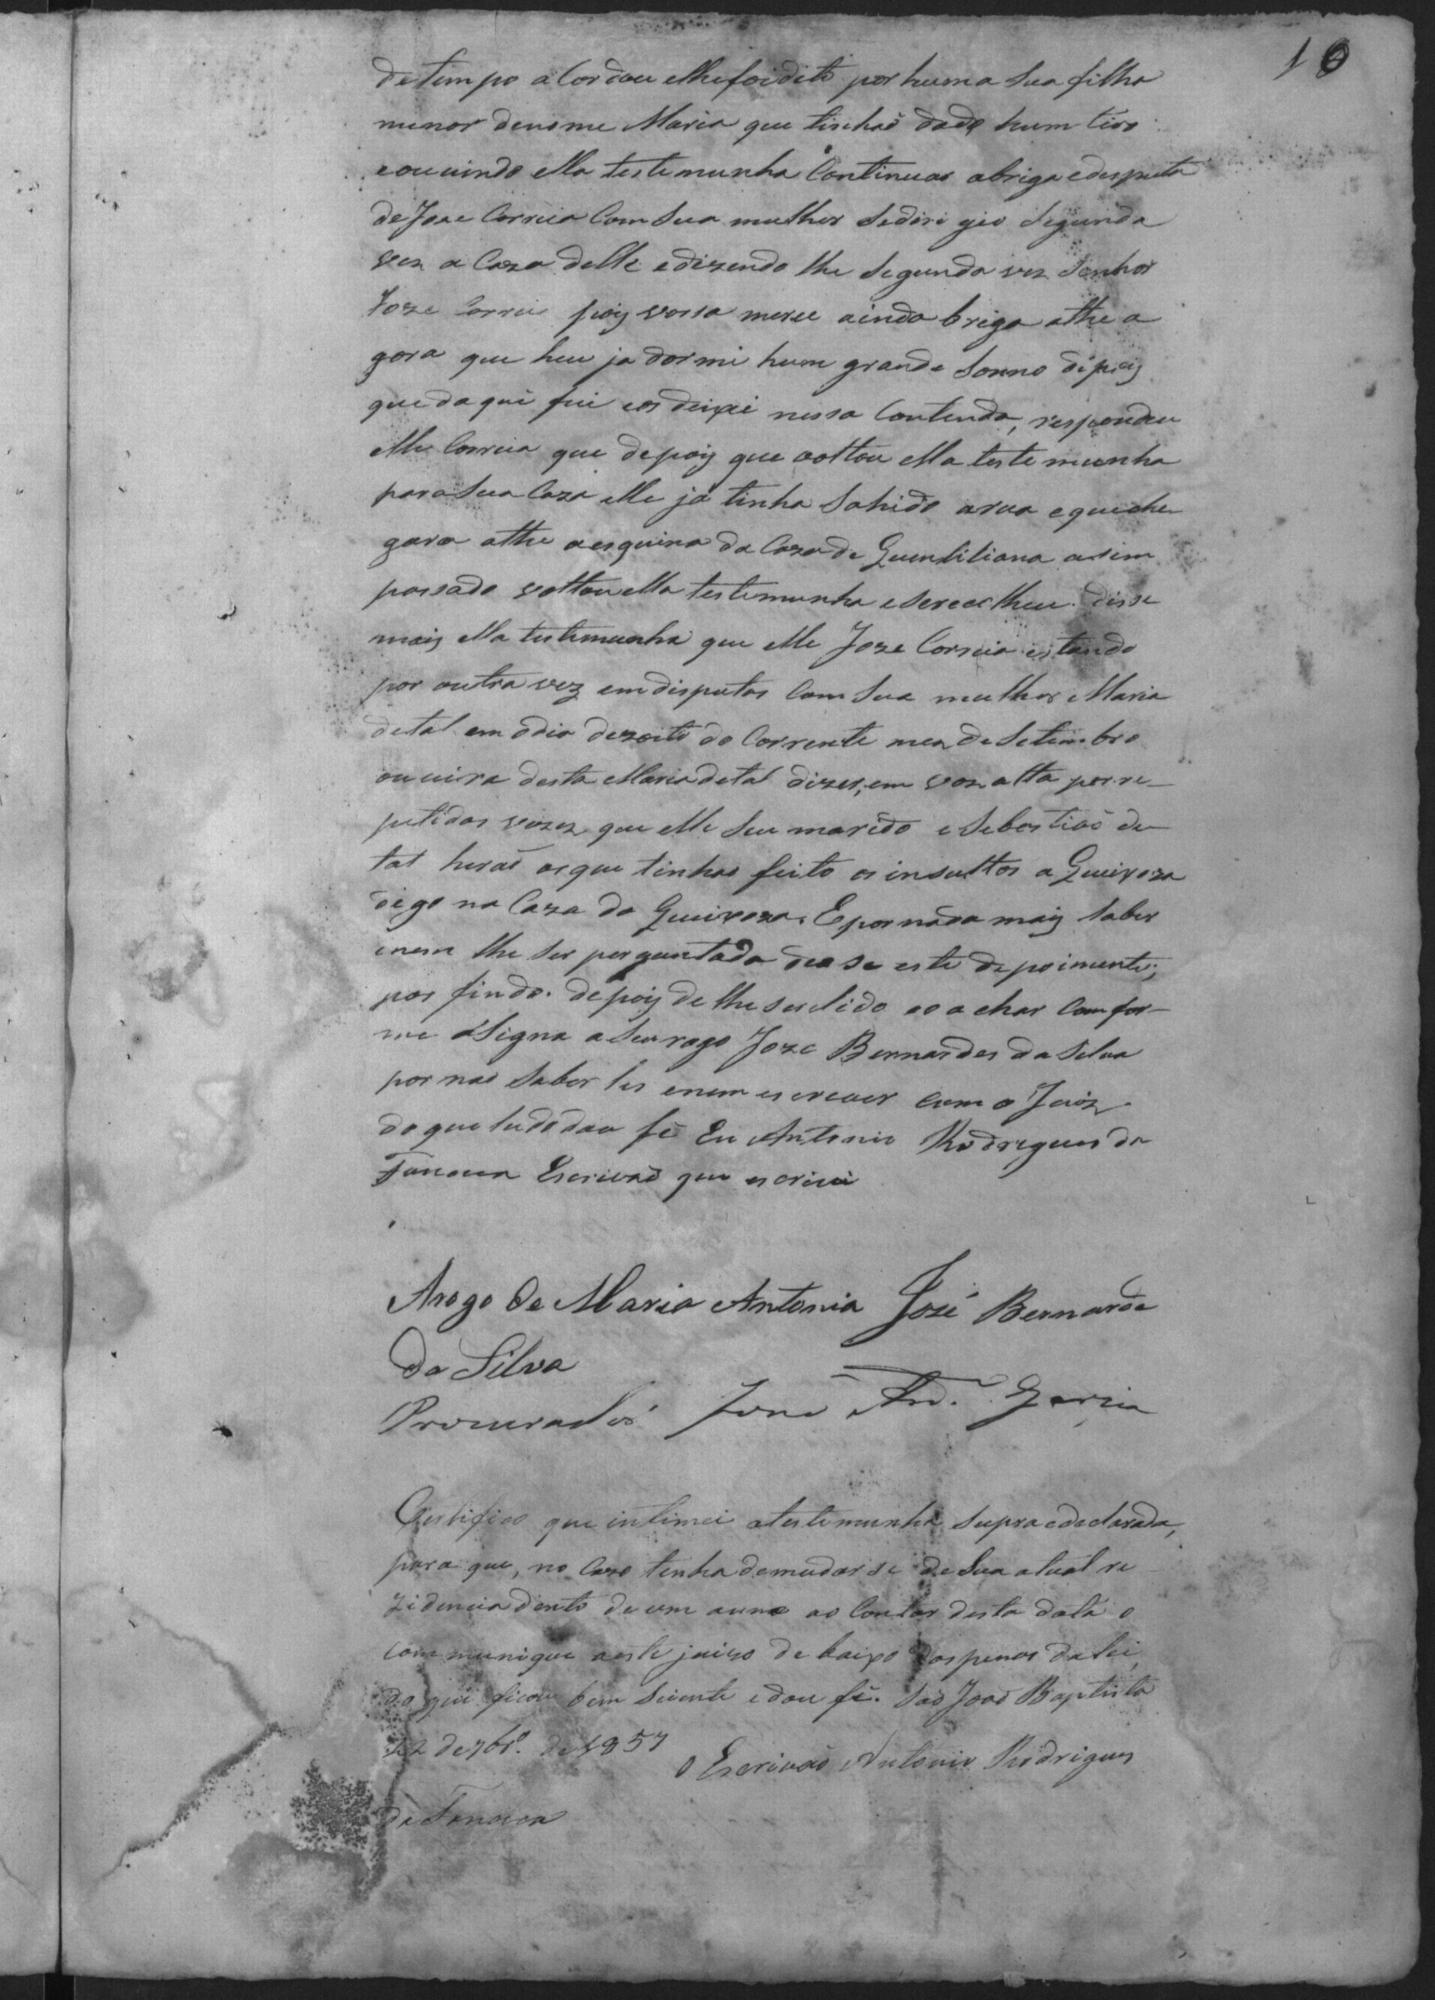 10
de tempo a Cordou elhe foi dito por huma Sua filha
menor denome Maria que tinhaõ dado hum tiro
eouvindo ella testemunha Continuar abriga edesputa
de Joze Correia Com Sua mulher Sedirigio Segunda
vez a Caza delle edizendo lhe Segunda vez Senhor
Joze Correia pois vossa merce ainda briga athe a
gora que heu ja dormi hum grande Sonno dipois
que daqui fui eos deixei nessa Contenda, respondeu
elle Correia que depois que voltou ella testemunha
para Sua Caza elle ja tinha Sahido arua eque che
gara athe aesquina da Caza de Quentiliana asim
passado voltou ella testemunha eserecolheu. disse
mais ella testemunha que elle Joze Correia estando
por outra vez em disputas Com Sua mulher Maria
detal em odia dezoito do Corrente mez de Setembro
ouvira desta Maria detal dizer, em voz alta por re-
petidas vozes que elle Seu marido e Sebastiaõ de
tal heraõ os que tinhaõ feito os insultos a Queiroza
digo na Caza da Queiroza. E por nada mais Saber
enem lhe Ser perguntada deo Se este depoimento,
por findo. depois de lhe Ser lido eo achar Comfor-
me aSigna aSeu rogo Joze Bernardes da Silva
por naõ Saber ler enem escrever com o Juiz
do que tudo dou fé Eu Antonio Rodrigues da
Fonceca Escrivaõ que escrivi
Arogo de Maria Antonia José Bernarde
da Silva
Procurador José Anº. Garcia
Certifico que intimei atestemunha Supra edeclarada,
para que, no Cazo tenha demudarse de Sua atual re
zidencia dento de um anno ao Contar desta data o
Communique aeste juizo de baixo das penas da lei,
do que ficou bem Sciente edou fé. Saõ Joaõ Baptista
22 de 7brº. de 1857
O Escrivaõ Antonio Rodrigues
da Fonceca